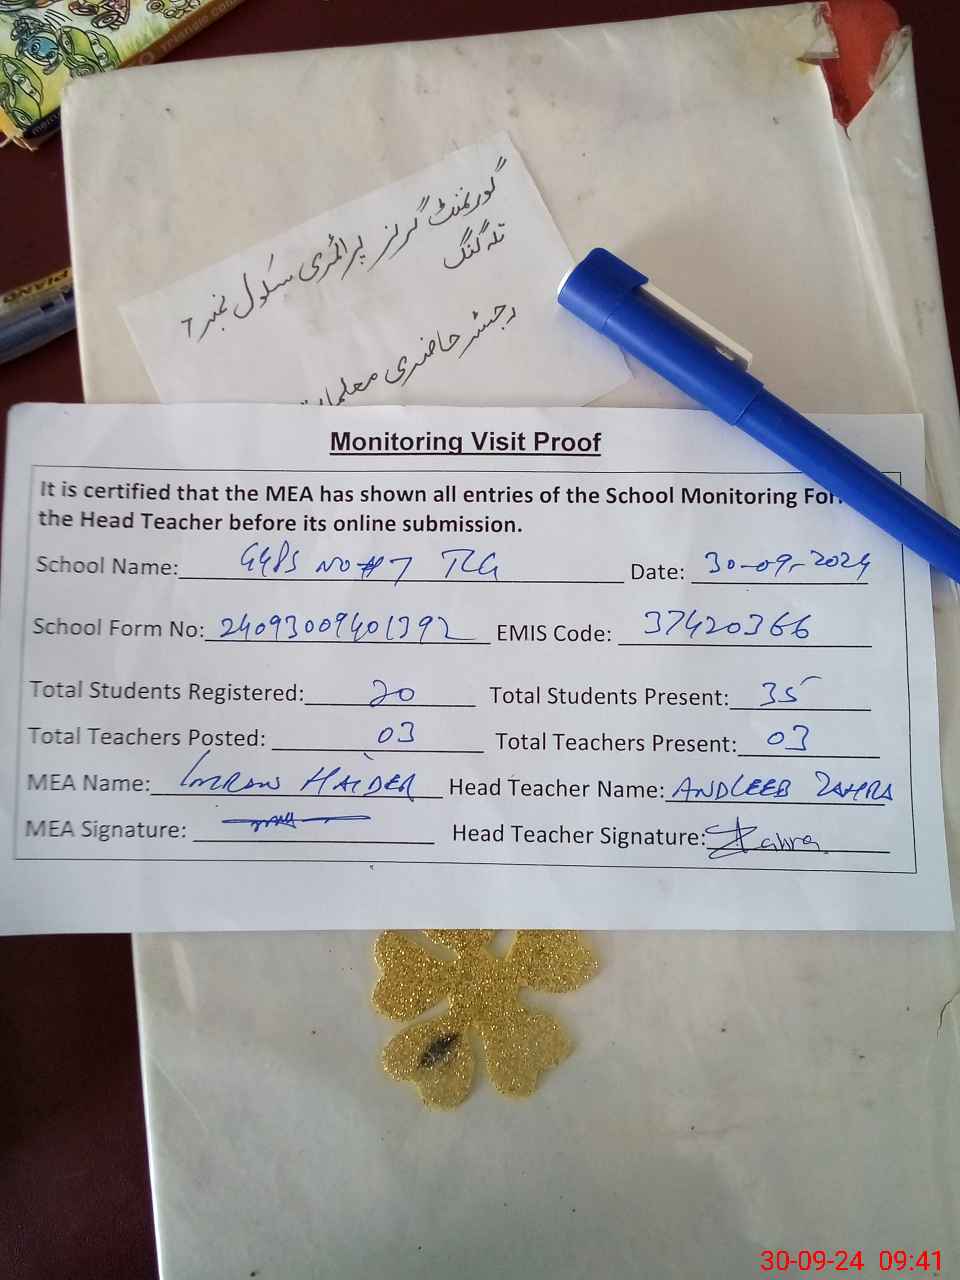 گورنمنٹ گرلز پرائمری سکول نمبر 7
تلہ گنگ
رجسٹر حاضری
Monitoring Visit Proof
It is certified that the MEA has shown all entries of the School Monitoring
the Head Teacher before its online submission.
School Name: GGPS NO #7 TLG Date: 30-09-2024
School Form No: 24093009401392 EMIS Code: 37420366
Total Students Registered: 20 Total Students Present: 35
Total Teachers Posted: 03 Total Teachers Present: 03
MEA Name: IMRAN HAIDER Head Teacher Name: ANDLEEB ZAHRA
MEA Signature: Head Teacher Signature: Zahra
30-09-24 09:41